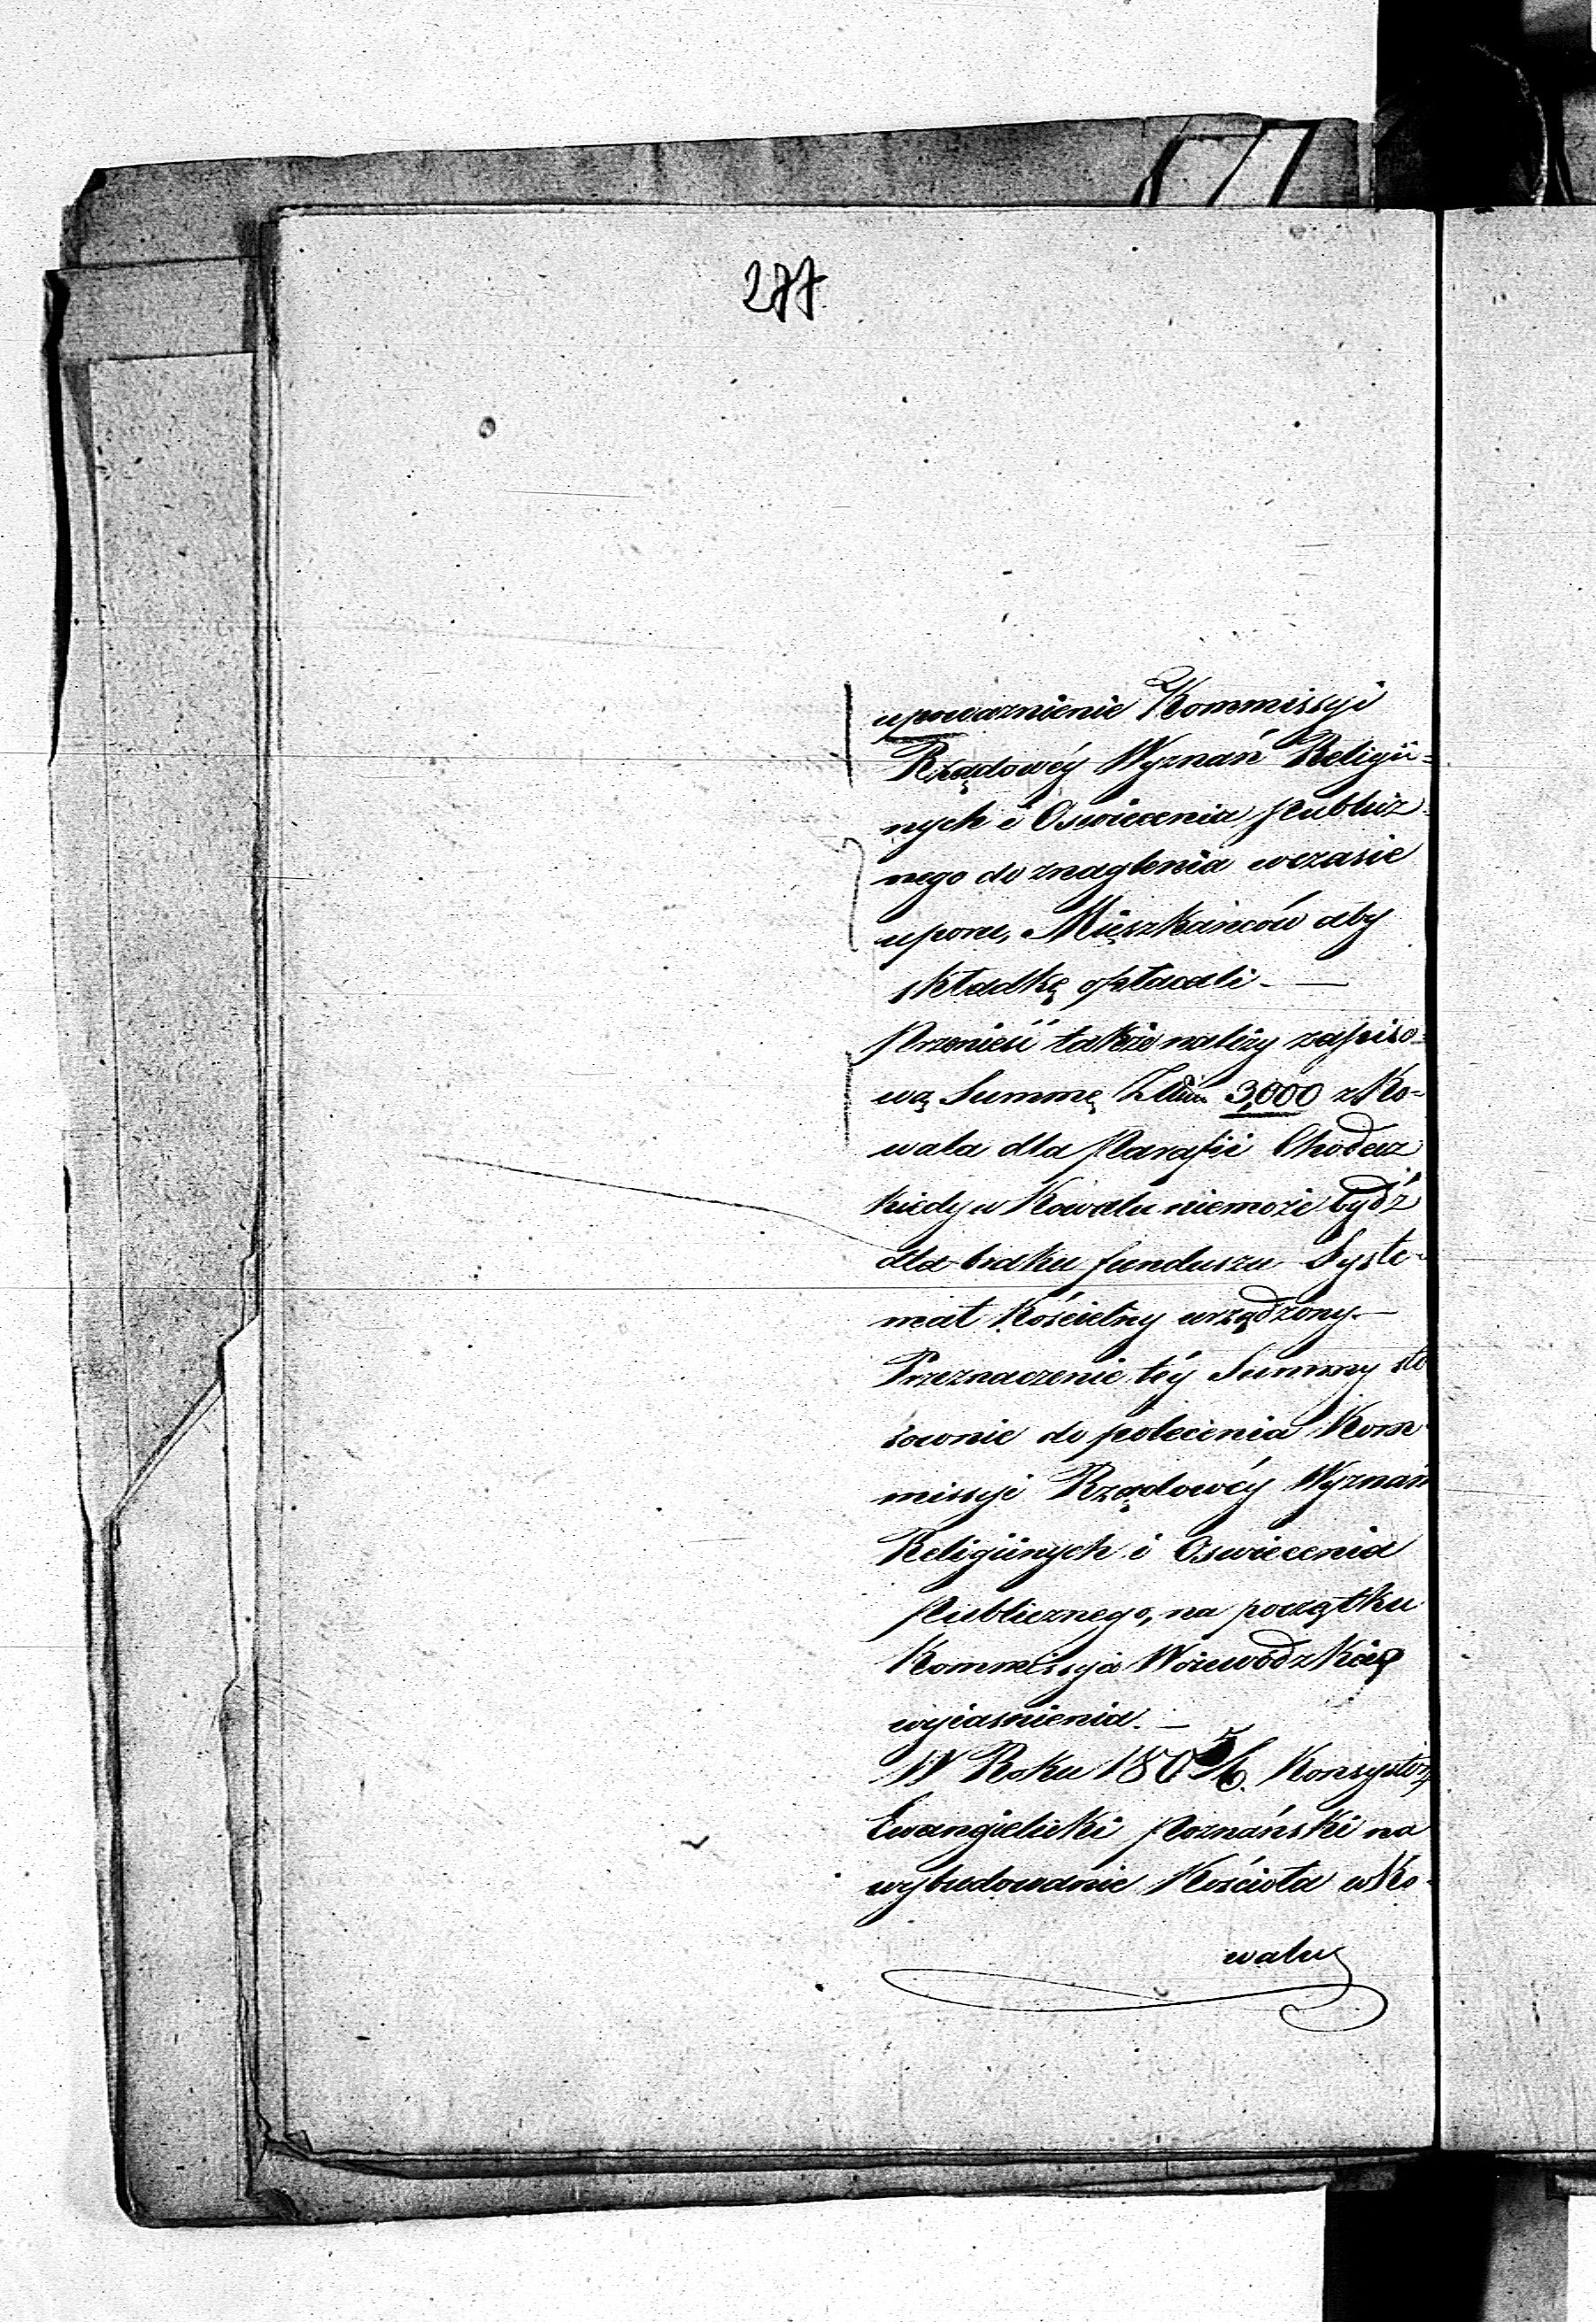 177
277
upoważnienie Kommissyi
Rządowéy Wyznań Religii=
nych i Oswiecenia Publicz=
nego do znaglenia wczasie
uporu, Mieszkańców aby
składkę opłacali. —
Przenieść także należy zapiso=
wą Summę 3,000 z Ko=
wala dla Parafii Chodecz
kiedy w Kowalu niemoże bydź
dla braku funduszu Syste=
mat Kościelny urządzony. —
Przeznaczenie téy Summy sto
sownie do polecenia Kom
missyi Rządowéy Wyznań
Religiinych i Oswiecenia
Publicznego, na początku
Kommissya Woiewódzka
wyiasnienia. —
W Roku 180 5/6. Konsystorz
Ewangielicki Poznański na
wybudowanie Kościoła w Ko=
walu